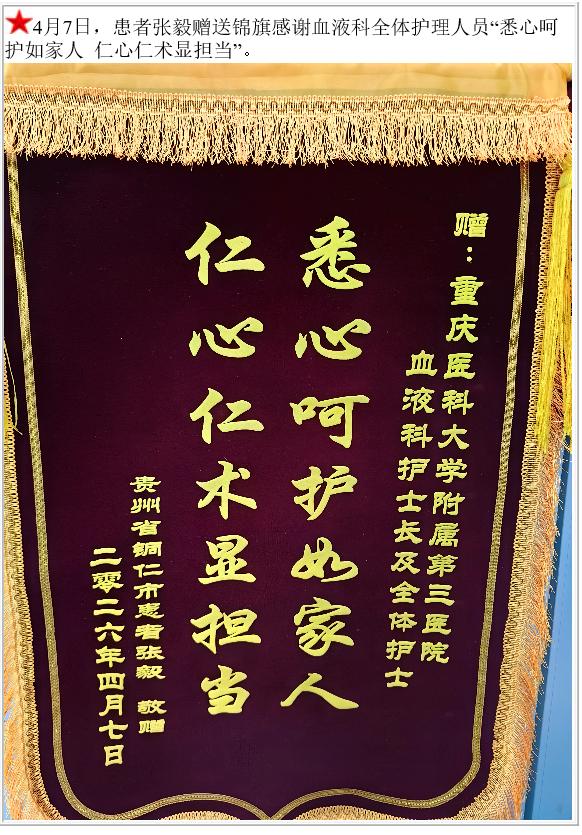 4月7日，患者张毅赠送锦旗感谢血液科全体护理人员“悉心呵
护如家人 仁心仁术显担当”。
赠：重庆医科大学附属第三医院
血液科护士长及全体护士
悉心呵护如家人
仁心仁术显担当
贵州省铜仁市患者张毅 敬赠
二零二六年四月七日